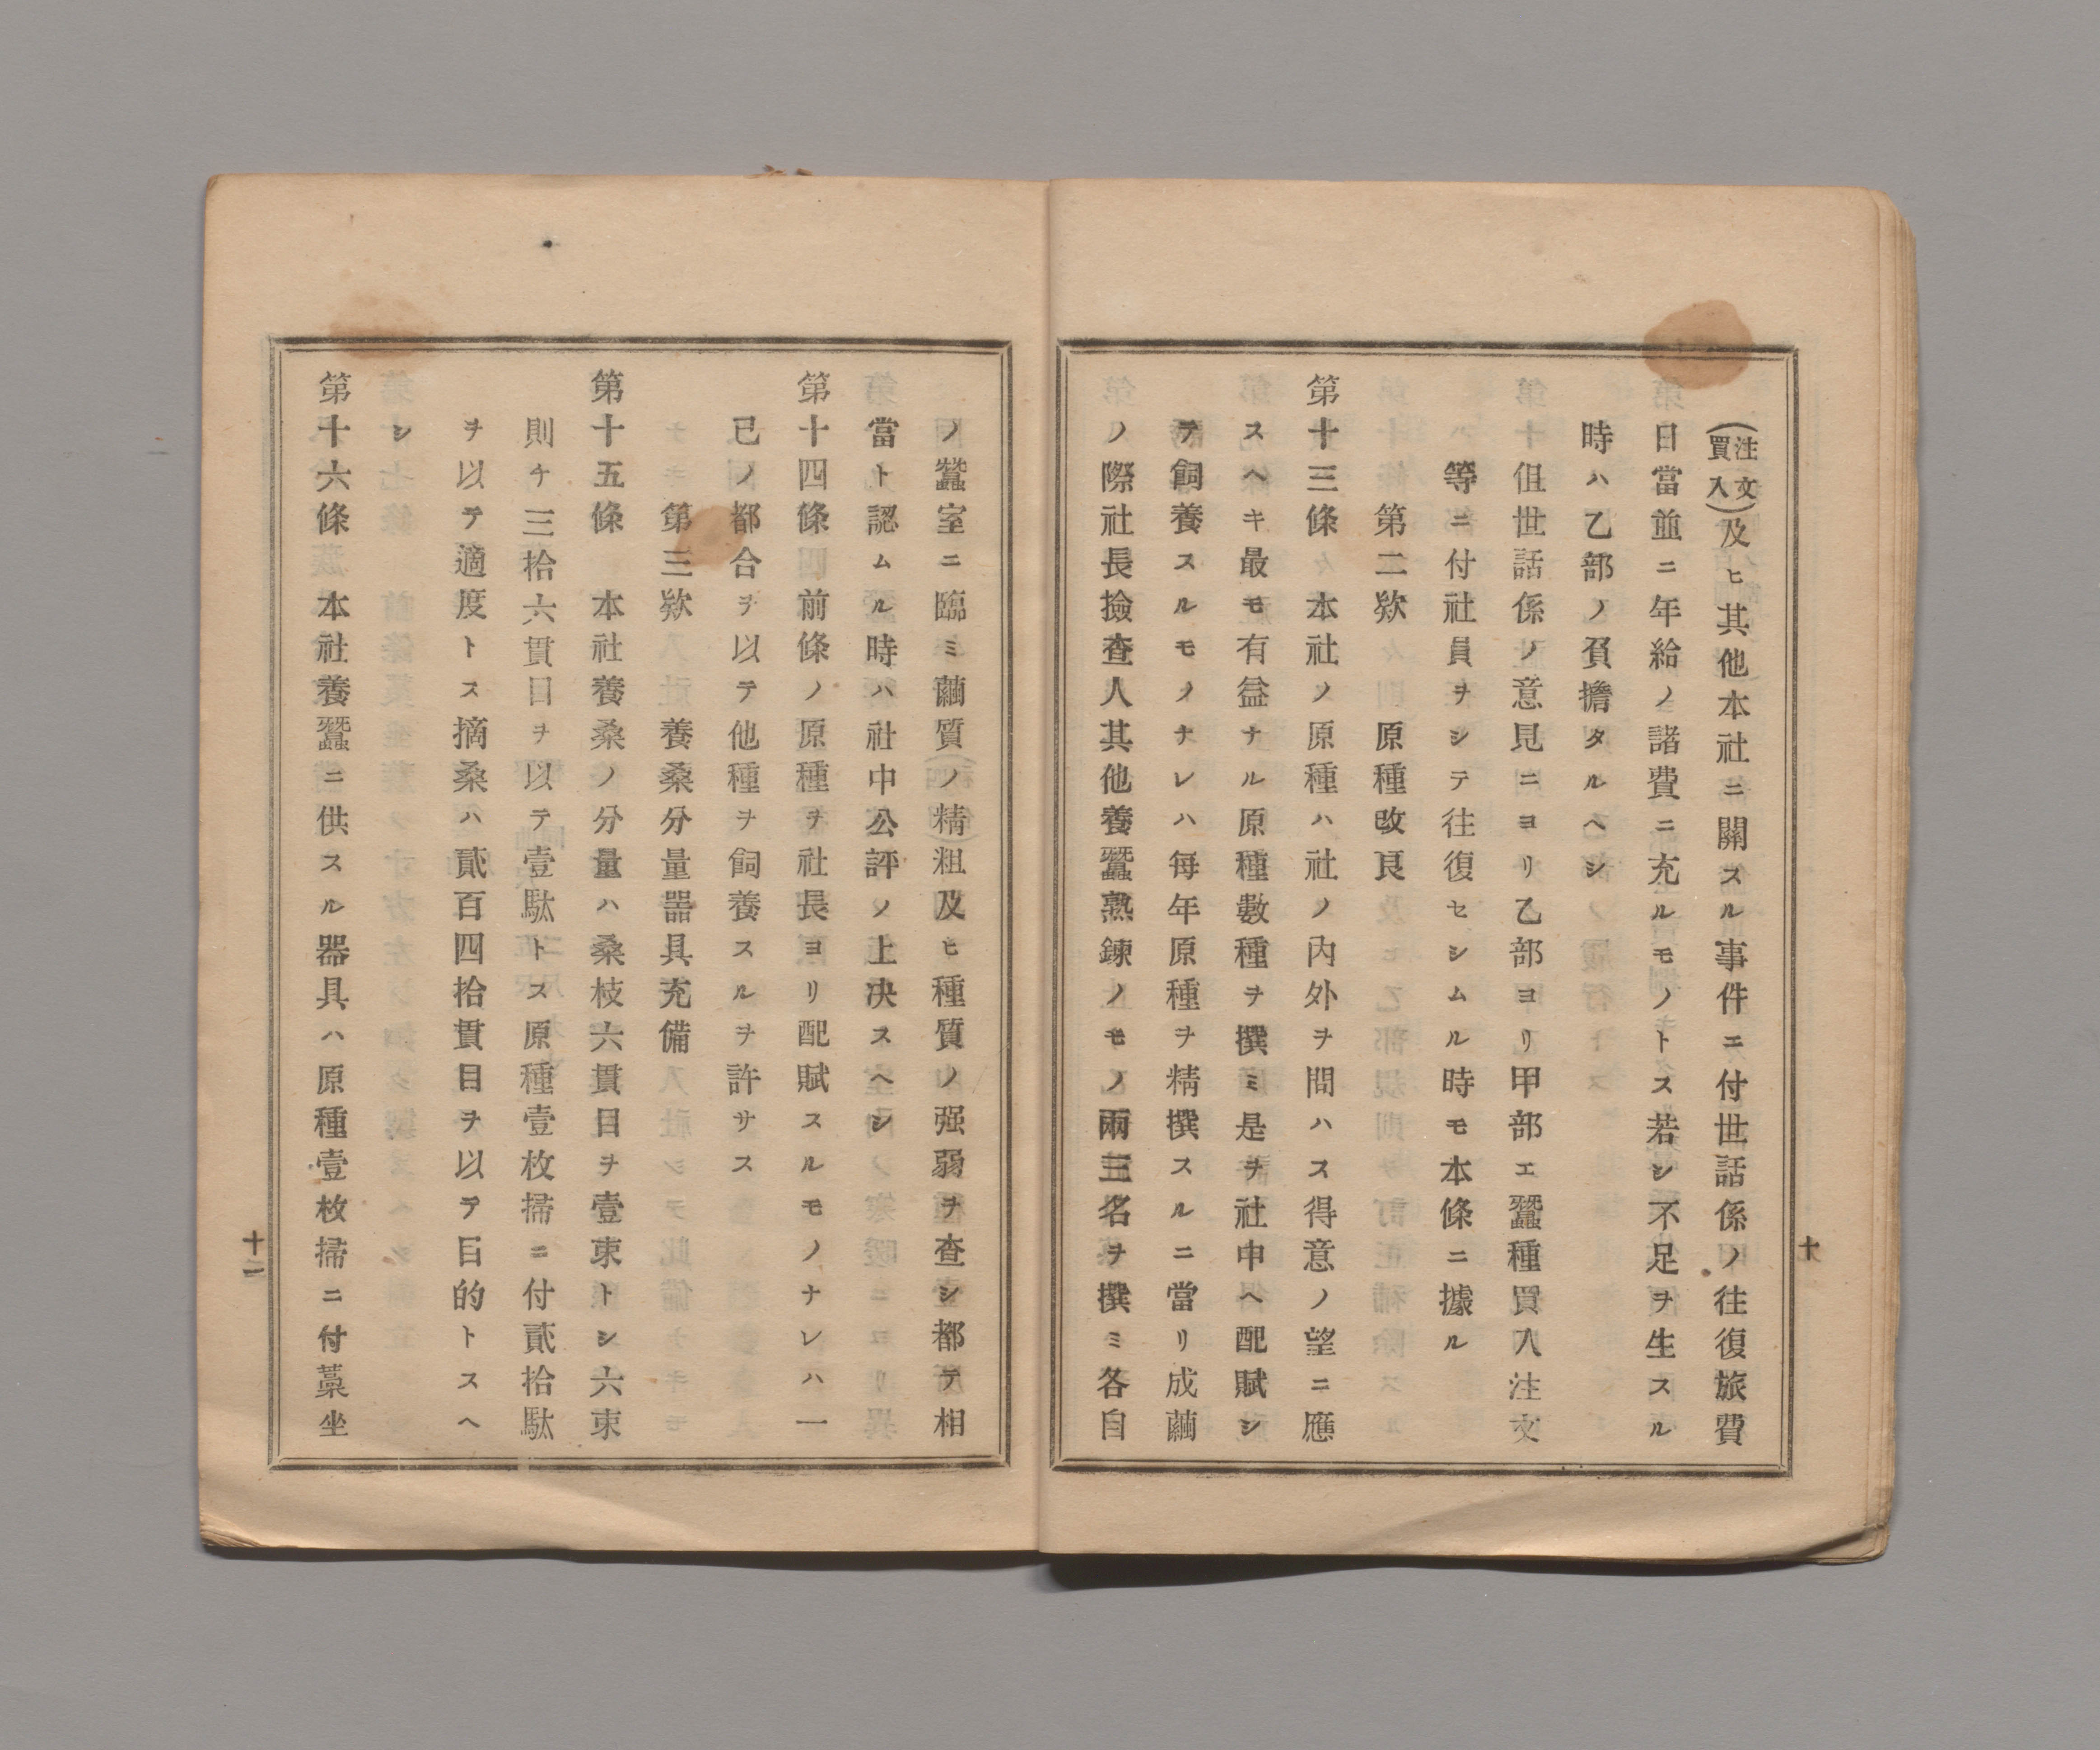 (注文買入)及ヒ其他本社ニ關スル事件ニ付世話係ノ往復旅費
日當並ニ年給ノ諸費ニ充ルモノトス若シ不足ヲ生スル
時ハ乙部ノ負擔タルヘシ
但世話係ノ意見ニヨリ乙部ヨリ甲部エ蠶種買入注文
等ニ付社員ヲシテ往復セシムル時モ本條ニ據ル
第二欵 原種改良
第十三條 本社ノ原種ハ社ノ内外ヲ問ハス得意ノ望ニ應
スヘキ最モ有益ナル原種數種ヲ撰ミ是ヲ社中ヘ配賦シ
テ飼養スルモノナレハ毎年原種ヲ精撰スルニ當リ成繭
ノ際社長撿査人其他養蠶熟鍊ノモノ兩三名ヲ撰ミ各自
十
ノ蠶室ニ臨ミ繭質ノ精粗及ヒ種質ノ强弱ヲ查シ都テ相
當ト認ムル時ハ社中公評ノ上决スヘシ
第十四條 前條ノ原種ヲ社長ヨリ配賦スルモノナレハ一
已ノ都合ヲ以テ他種ヲ飼養スルヲ許サス
第三欵 養桑分量器具充備
第十五條 本社養桑ノ分量ハ桑枝六貫目ヲ壹束トシ六束
則チ三拾六貫目ヲ以テ壹駄トス原種壹枚掃ニ付貳拾駄
ヲ以テ適度トス摘桑ハ貳百四拾貫目ヲ以テ目的トスヘ
シ
第十六條 本社養蠶ニ供スル器具ハ原種壹枚掃ニ付藁坐
十一